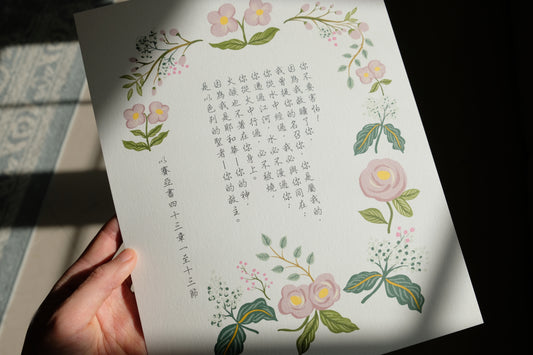 你不要害怕！
因為我救贖了你，
我曾提你的名召你，你是屬我的，
你從水中經過，我必與你同在；
你過江河，水必不漫過你；
你從火中行過，必不被燒，
火焰也不著在你身上。
因為我是耶和華—你的神，
是以色列的聖者—你的救主。
以賽亞書四十三章一至十三節